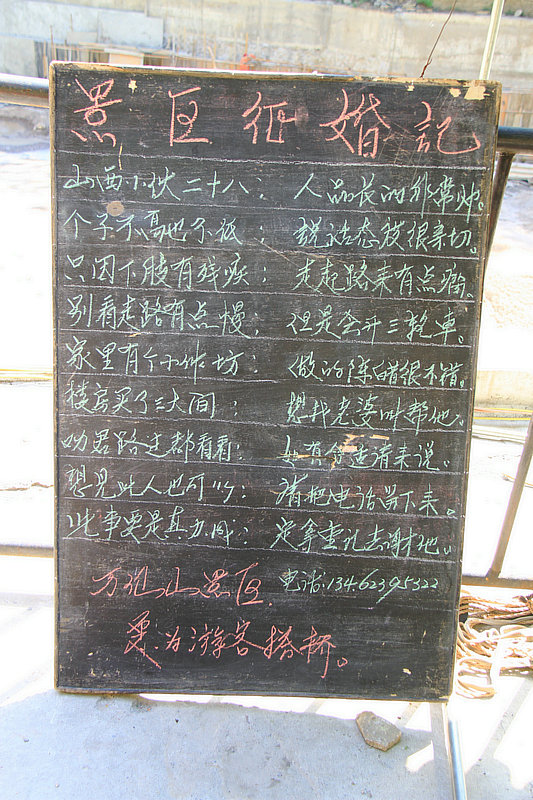 景区征婚记
山西小伙二十八：人品长的非常帅。
个子不高也不低；说话态度很亲切。
只因下肢有残疾；走起路来有点瘸。
别看走路有点慢，但是会开三轮車。
家里有个小作坊：做的陈醋很不错。
楼房买了三大间：想找老婆叫帮他。
叻君路过都看看：如有合适请来说。
想见此人也可以：请把电话留下来。
此事要是真办成：定拿重礼去谢他。
万仙山景区 电话:13462395322
愛为游客搭桥。